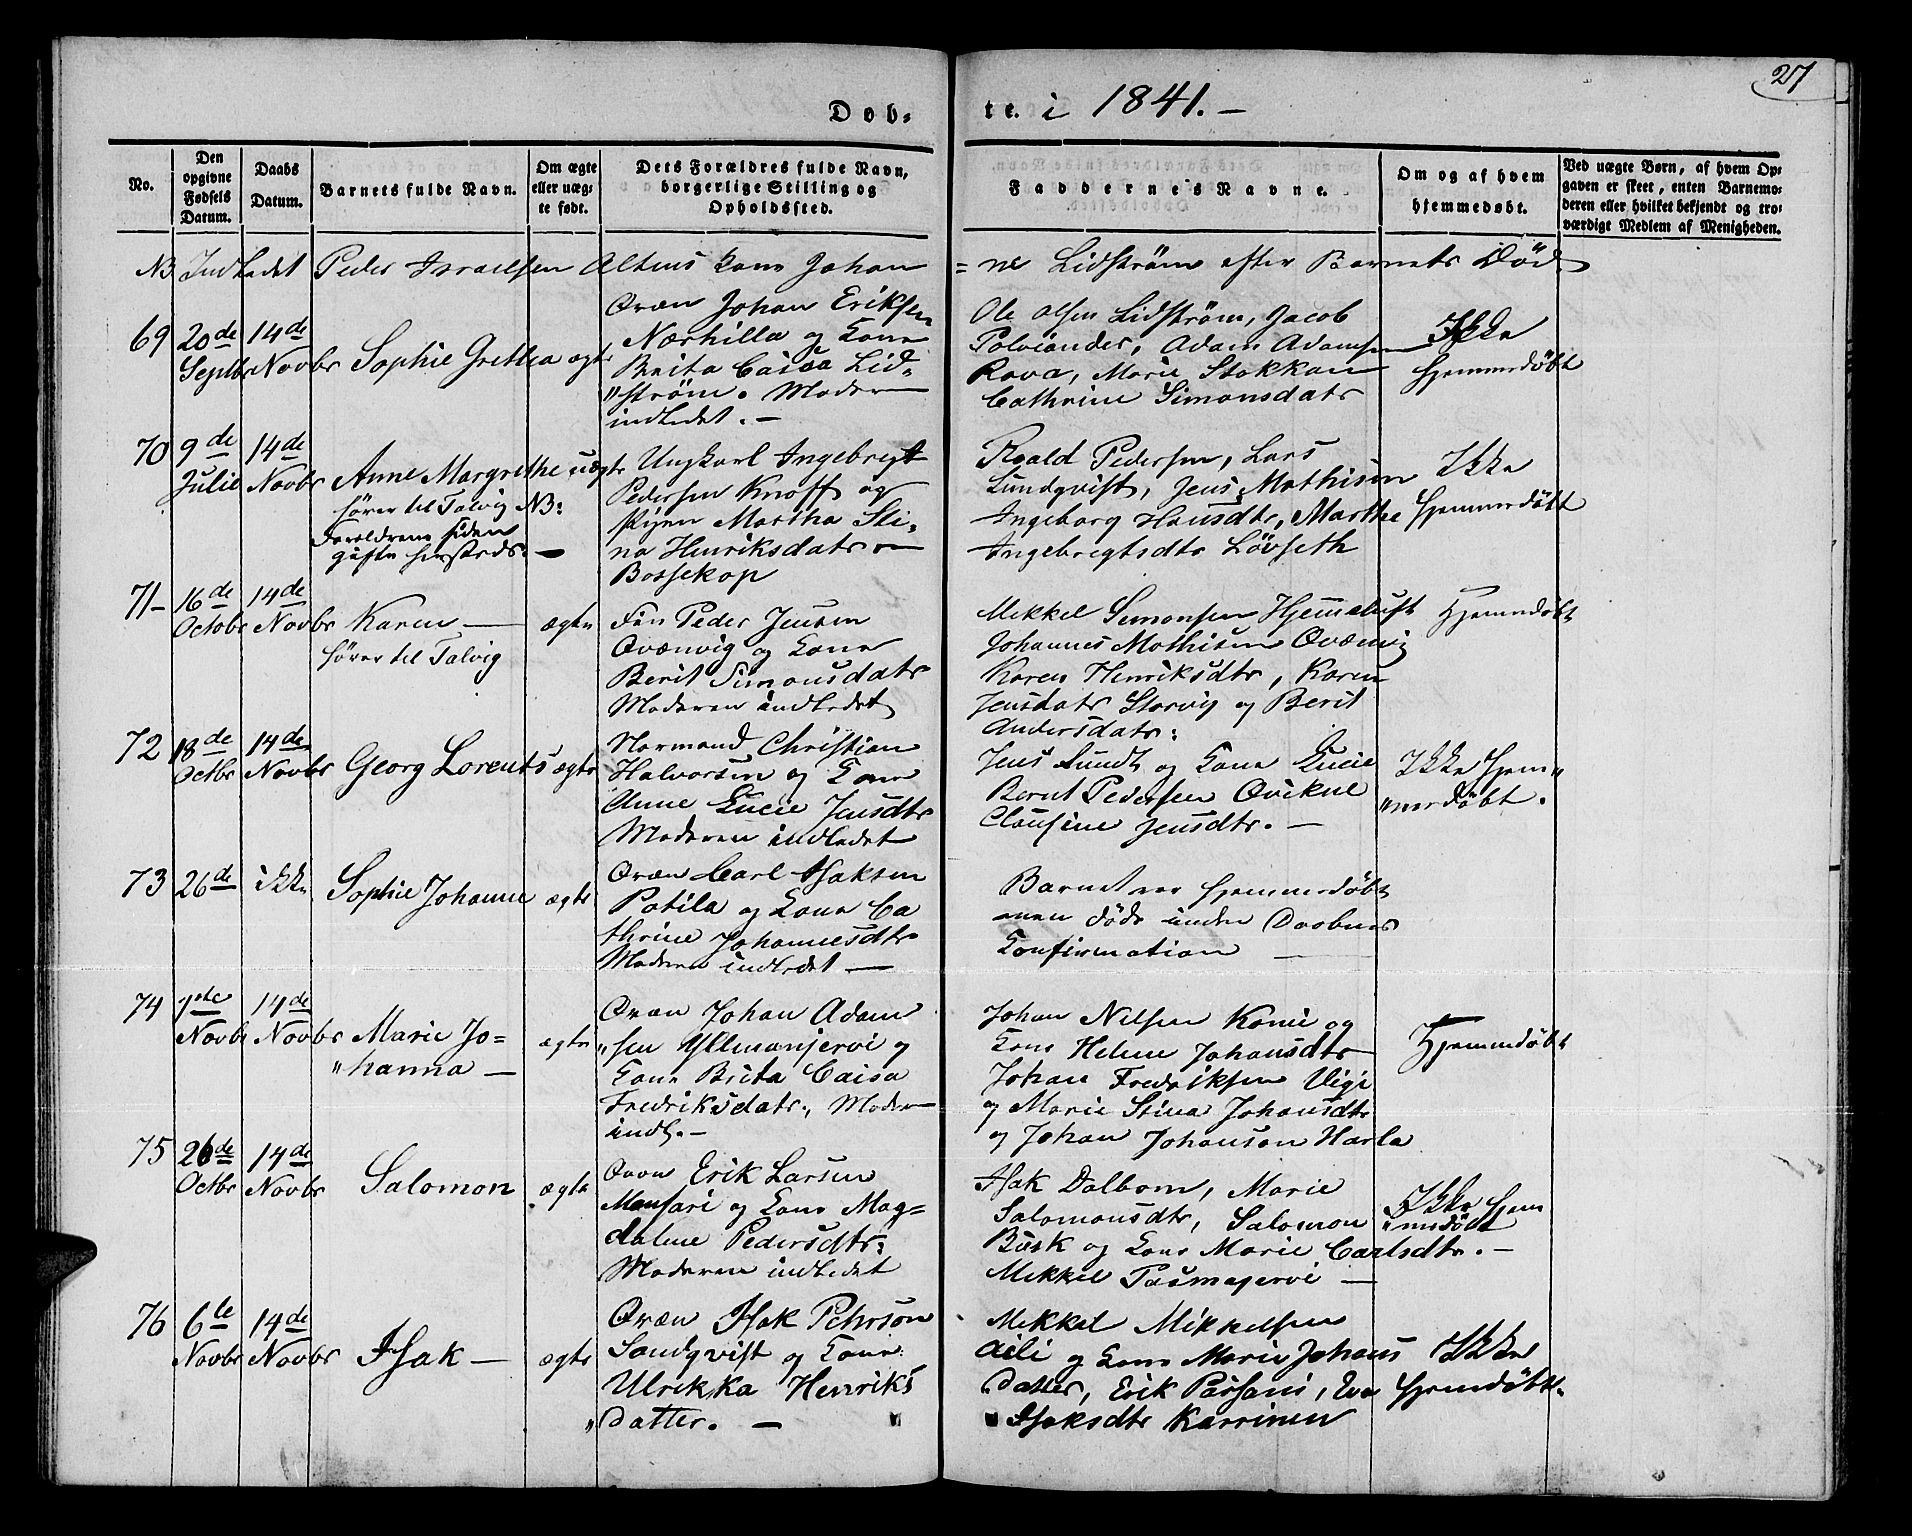 27
Døb-
te. i 1841. -
No.
Den
opgivne
Fødsels
Datum.
Daabs
Datum.
Barnets fulde Navn.
Om ægte
eller uæg-
te født.
Dets Forældres fulde Navn,
borgerlige Stilling og
Opholdssted.
Faddernes Navne.
Om og af hvem
hjemmedøbt.
Ved uægte Børn, af hvem Op-
gaven er skeet, enten Barnemo-
deren eller hvilket bekjendt og tro-
værdigt Medlem af Menigheden.
NB Indledet Peder Israelsen Altens Kone Johan
= ne Lidstrøm efter Barnets Død
69
20de
Septbr
14de
Novbr
Sophie Grethea
ægte
Qvæn Johan Eriksen
Narhilla og Kone
Brita Caisa Lid-
"strøm. Moderen
indledet. -
Ole Olsen Lidstrøm, Jacob
Polviander, Adam Adamsen
Rova, Marie Stokkan
Cathrine Simonsdatr
Ikke
hjemmedøbt
70
9de
Julie
14de
Novbr
Anne Margrethe
hører til Talvig NB:
Forældrene siden
gifte hersteds. -
uægte
Ungkarl Ingebrigt
Pedersen Knoff og
Pigen Martha Sti-
na Henriksdatr -
Bossekop
Roald Pedersen, Lars
Lundqvist, Jens Mathisen
Ingeborg Hansdtr, Marthe
Ingebrigtsdtr Løvseth
Ikke
hjemmedøbt
71-
16de
Octobr
14de
Novbr
Karen -
hører til Talvig
ægte
Fin Peder Jensen
Qvænvig og Kone
Berit Simonsdatr
Moderen indledet
Mekkel Simonsen Hjemeluft
Johannes Mathisen Qvænvig
Karen Henriksdtr, Karen
Jensdatr Storvig og Berit
Andersdatr:
Hjemmedøbt
72
18de
Octbr
14de
Novbr
Georg Lorents
ægte
Normand Christian
Halvorsen og Kone
Anne Lucie Jensdtr
Moderen indledet
Jens Lundt og Kone Lucie
Bernt Pedersen Qvikne
Clausine Jensdtr. -
Ikke hjem"
"medøbt.
73
26de
ikke
Sophie Johanne
ægte
Qvæn Carl Isaksen
Potila og Kone Ca
thrine Johannesdtr
Moderen indledet -
Barnet var hjemmedøbt
men døde inden Daabens
Confirmation -
74
1ste
Novbr
14de
Novbr
Marie Jo-
"hanna -
ægte
Qvæn Johan Adam
"sen Yllmanjervi og
Kone Brita Caisa
Fredriksdatr, Moder
indl. -
Johan Nilsen Konie og
Kone Helene Johansdtr
Johan Fredriksen Vigi
og Marie Stina Johansdtr
og Johan Johanson Harla
Hjemmedøbt
75
26de
Octbr
14de
Novbr
Salomon
ægte
Qvæn Erik Larsen
Mensari og Kone Mag=
dalene Pedersdtr:
Moderen indledet
Isak Dalbom, Marie
Salomonsdtr, Salomon
Busk og Kone Marie Carlsdtr. -
Mekkel Pasmajervi -
Ikke hjem
"medøbt
76
6te
Novbr
14de
Novbr
Isak -
ægte
Qvæn Isak Pehrson
Sandqvist og Kone
Ulrikka Henriks
"datter. -
Mekkel Mikkelsen
Aili og Kone Marie Johans
datter, Erik Parsani, Eva
Isaksdtr Karrinen
Ikke
hjemmedøbt.